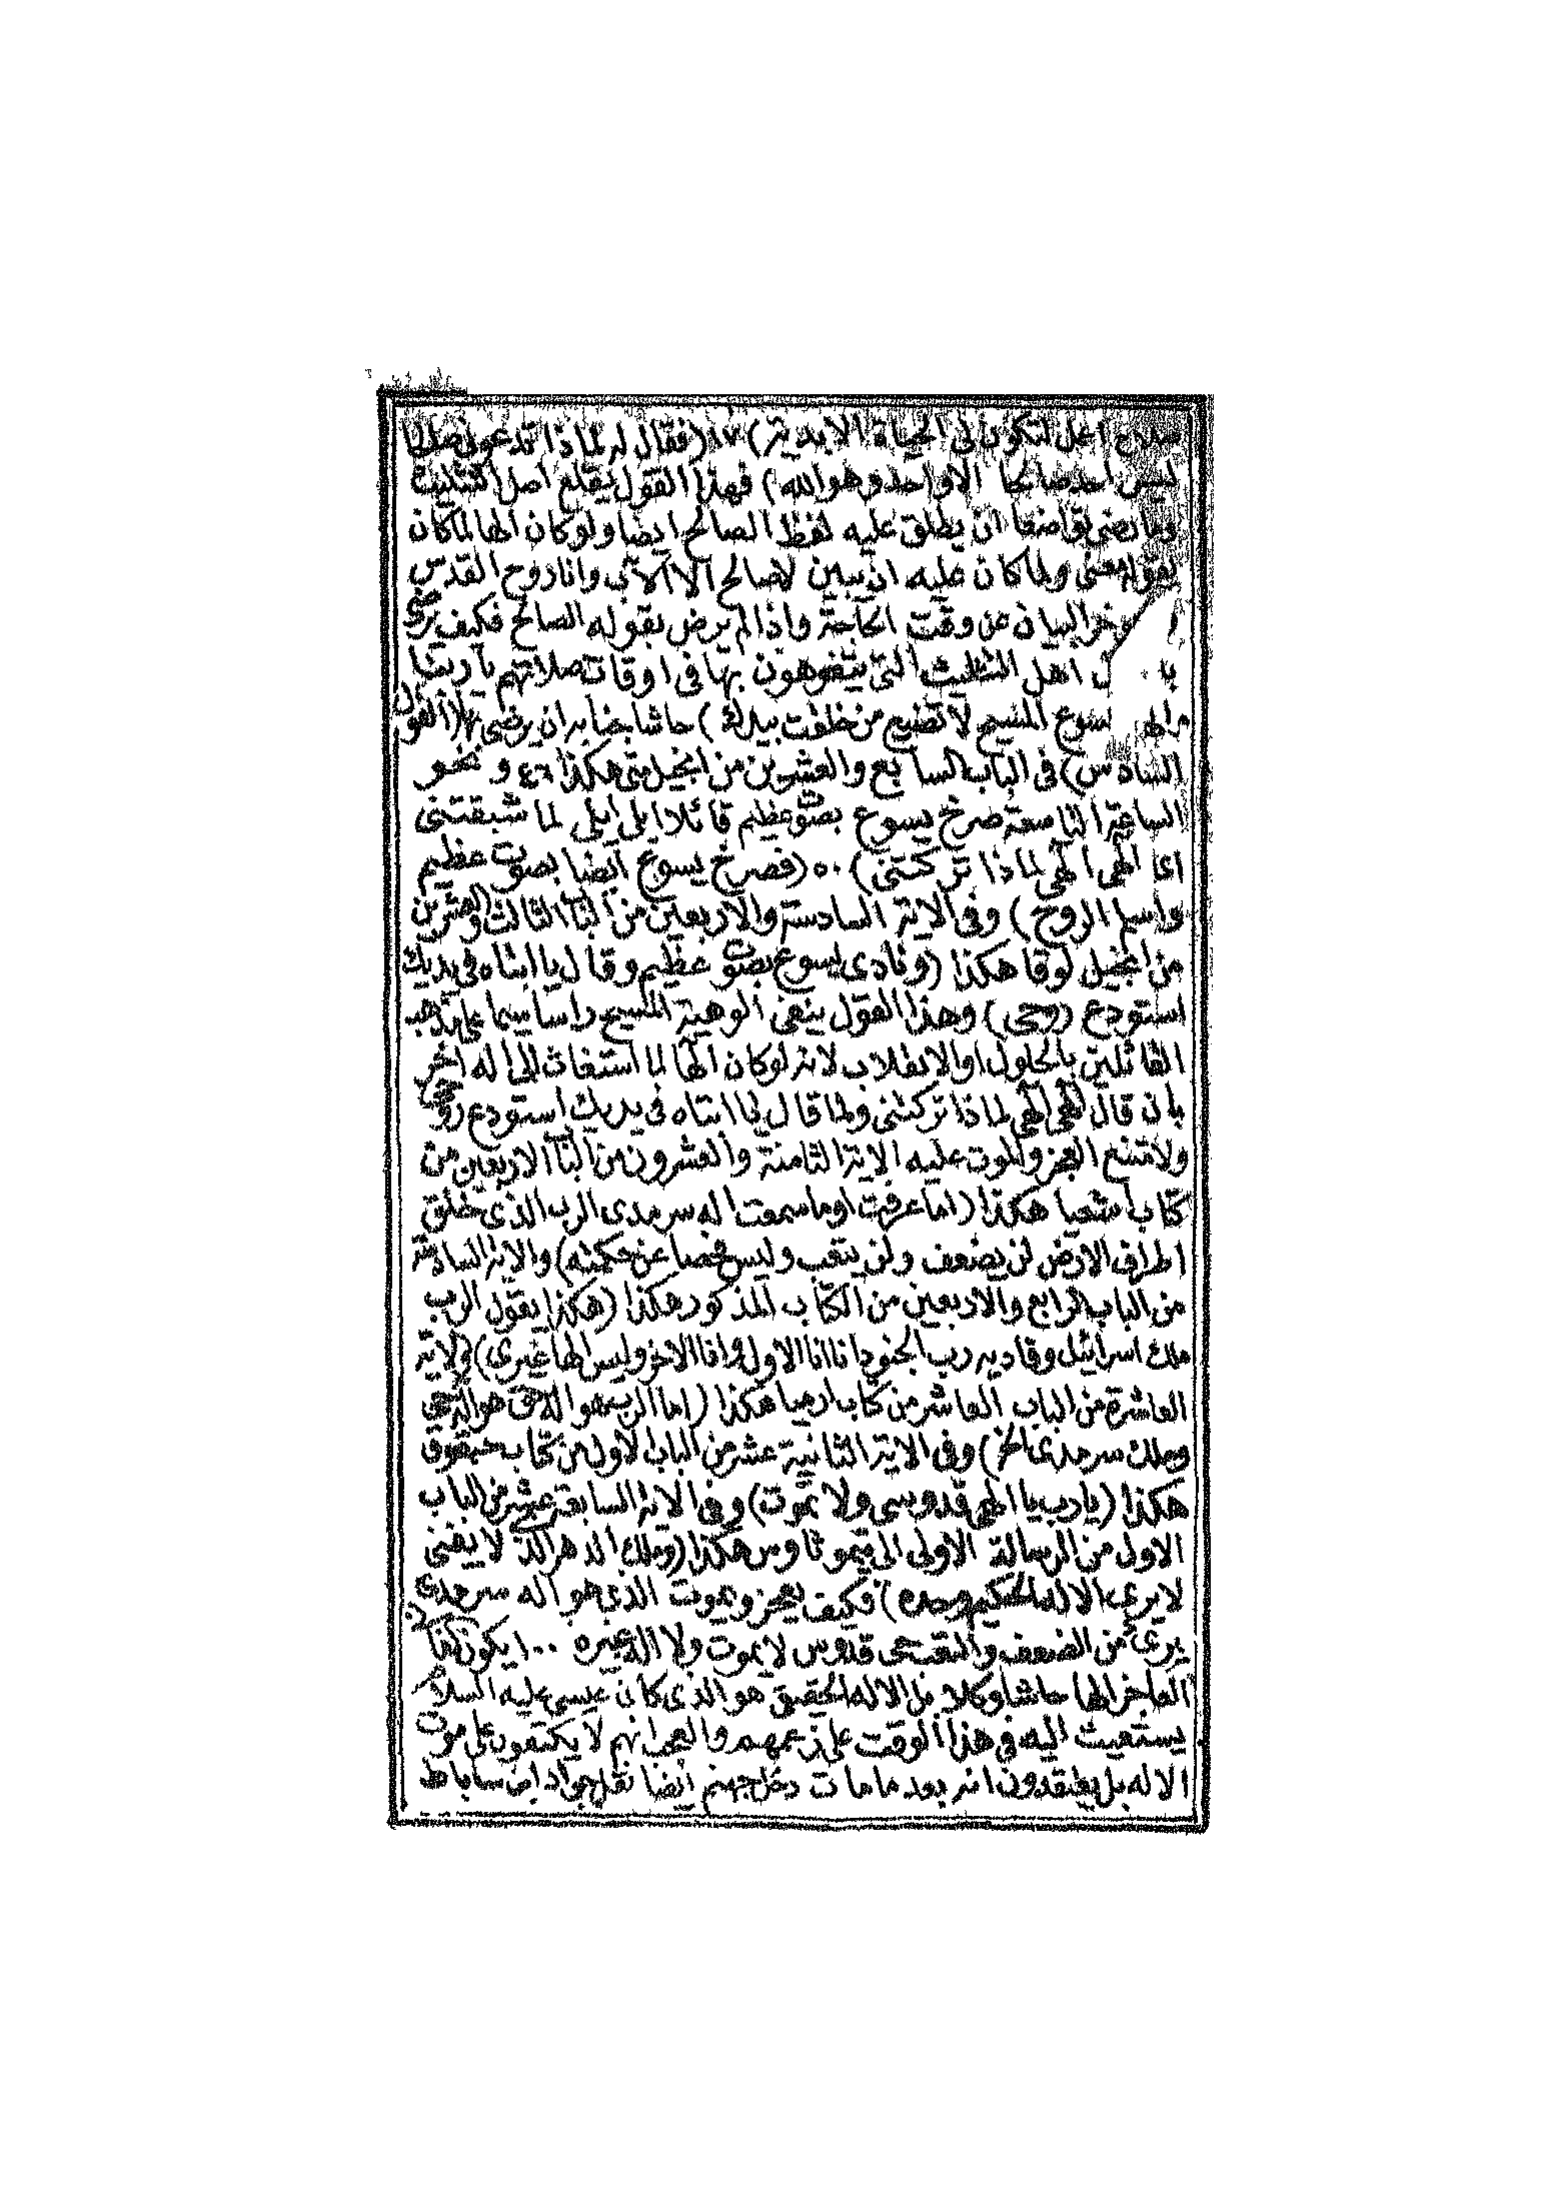 صلاح اعمل لتكون لى الحياة الابدية) ١٧ (فقال له لماذا تدعونى صالحا
ليس احد صالحا الا واحد وهو الله) فهذا القول يقلع اصل التثليث
وما رضى تواضعا ان يطلق عليه لفظ الصالح ايضا ولو كان الها لما كان
لقوله معنى ولما كان عليه ان يبين لا صالح الا الاب وانا وروح القدس
البيان عن وقت الحاجة واذا لم يرض بقوله الصالح فكيف يرضى
اهل التثليث التى يتفوهون بها فى اوقات صلاتهم يا ربنا
يسوع المسيح لا تضيع من خلقت بيدك) حاشا جنابه ان يرضى بهذا القول
السادس) فى الباب السابع والعشرين من انجيل متى هكذا ٤٦ و نحو
الساعة التاسعة صرخ يسوع بصوت عظيم قائلا ايلى ايلى لما شبقتنى
اى الهى الهى لماذا تركتنى) ٥٠ (فصرخ يسوع ايضا بصوت عظيم
واسلم الروح) وفى الاية السادسة والاربعين من الباب الثالث والعشرين
من انجيل لوقا هكذا (ونادى يسوع بصوت عظيم وقال يا ابتاه فى يديك
استودع روحى) وهذا القول ينفى الوهية المسيح راسا سيما على مذهب
القائلين بالحلول او الانقلاب لانه لو كان الها لما استغاث الى اله اخر
بان قال الهى الهى لماذا تركتنى ولما قال يا ابتاه فى يديك استودع روحى
ولامتنع العجز والموت عليه الاية الثامنة والعشرون من الباب الاربعين من
كتاب اشعيا هكذا (اما عرفت اوما سمعت اله سرمدى الرب الذى خلق
اطراف الارض لن يضعف ولن يتعب وليس فحصا عن حكمته) والاية السادسة
من الباب الرابع والاربعين من الكتاب المذكور هكذا (هكذا يقول الرب
ملك اسرائيل وفاديه رب الجنود انا انا الاول وانا الاخر وليس الها غيرى) والاية
العاشرة من الباب العاشر من كتاب ارميا هكذا (اما الرب هو اله حق هو اله حى
وملك سرمدى الخ) وفى الاية الثانية عشر من الباب الاول من كتاب حبقوق
هكذا (يا رب يا الهى قدوسى ولا تموت) وفى الاية السابعة عشر من الباب
الاول من الرسالة الاولى الى تيموثاوس هكذا (وملك الدهر الذى لا يفنى
لا يرى الاله الحكيم وحده) فكيف يعجز ويموت الذى هو اله سرمدى
برئ من الضعف والتعب حى قدوس لا يموت ولا اله غيره ٠٠ ايكون الفانى
العاجز الها حاشا وكلا بل الاله الحقيق هو الذى كان عيسى عليه السلام
يستغيث اليه فى هذا الوقت على زعمهم والعجب انهم لا يكتفون على موت
الاله بل يعتقدون انه بعد ما مات دخل جهنم ايضا نقل جواد ابن ساباط